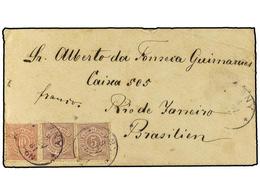 Sr. Alberto da Fonseca Guimaraes
Caixa 505
franco.
Rio de Janeiro
Brasilien
5 5 5